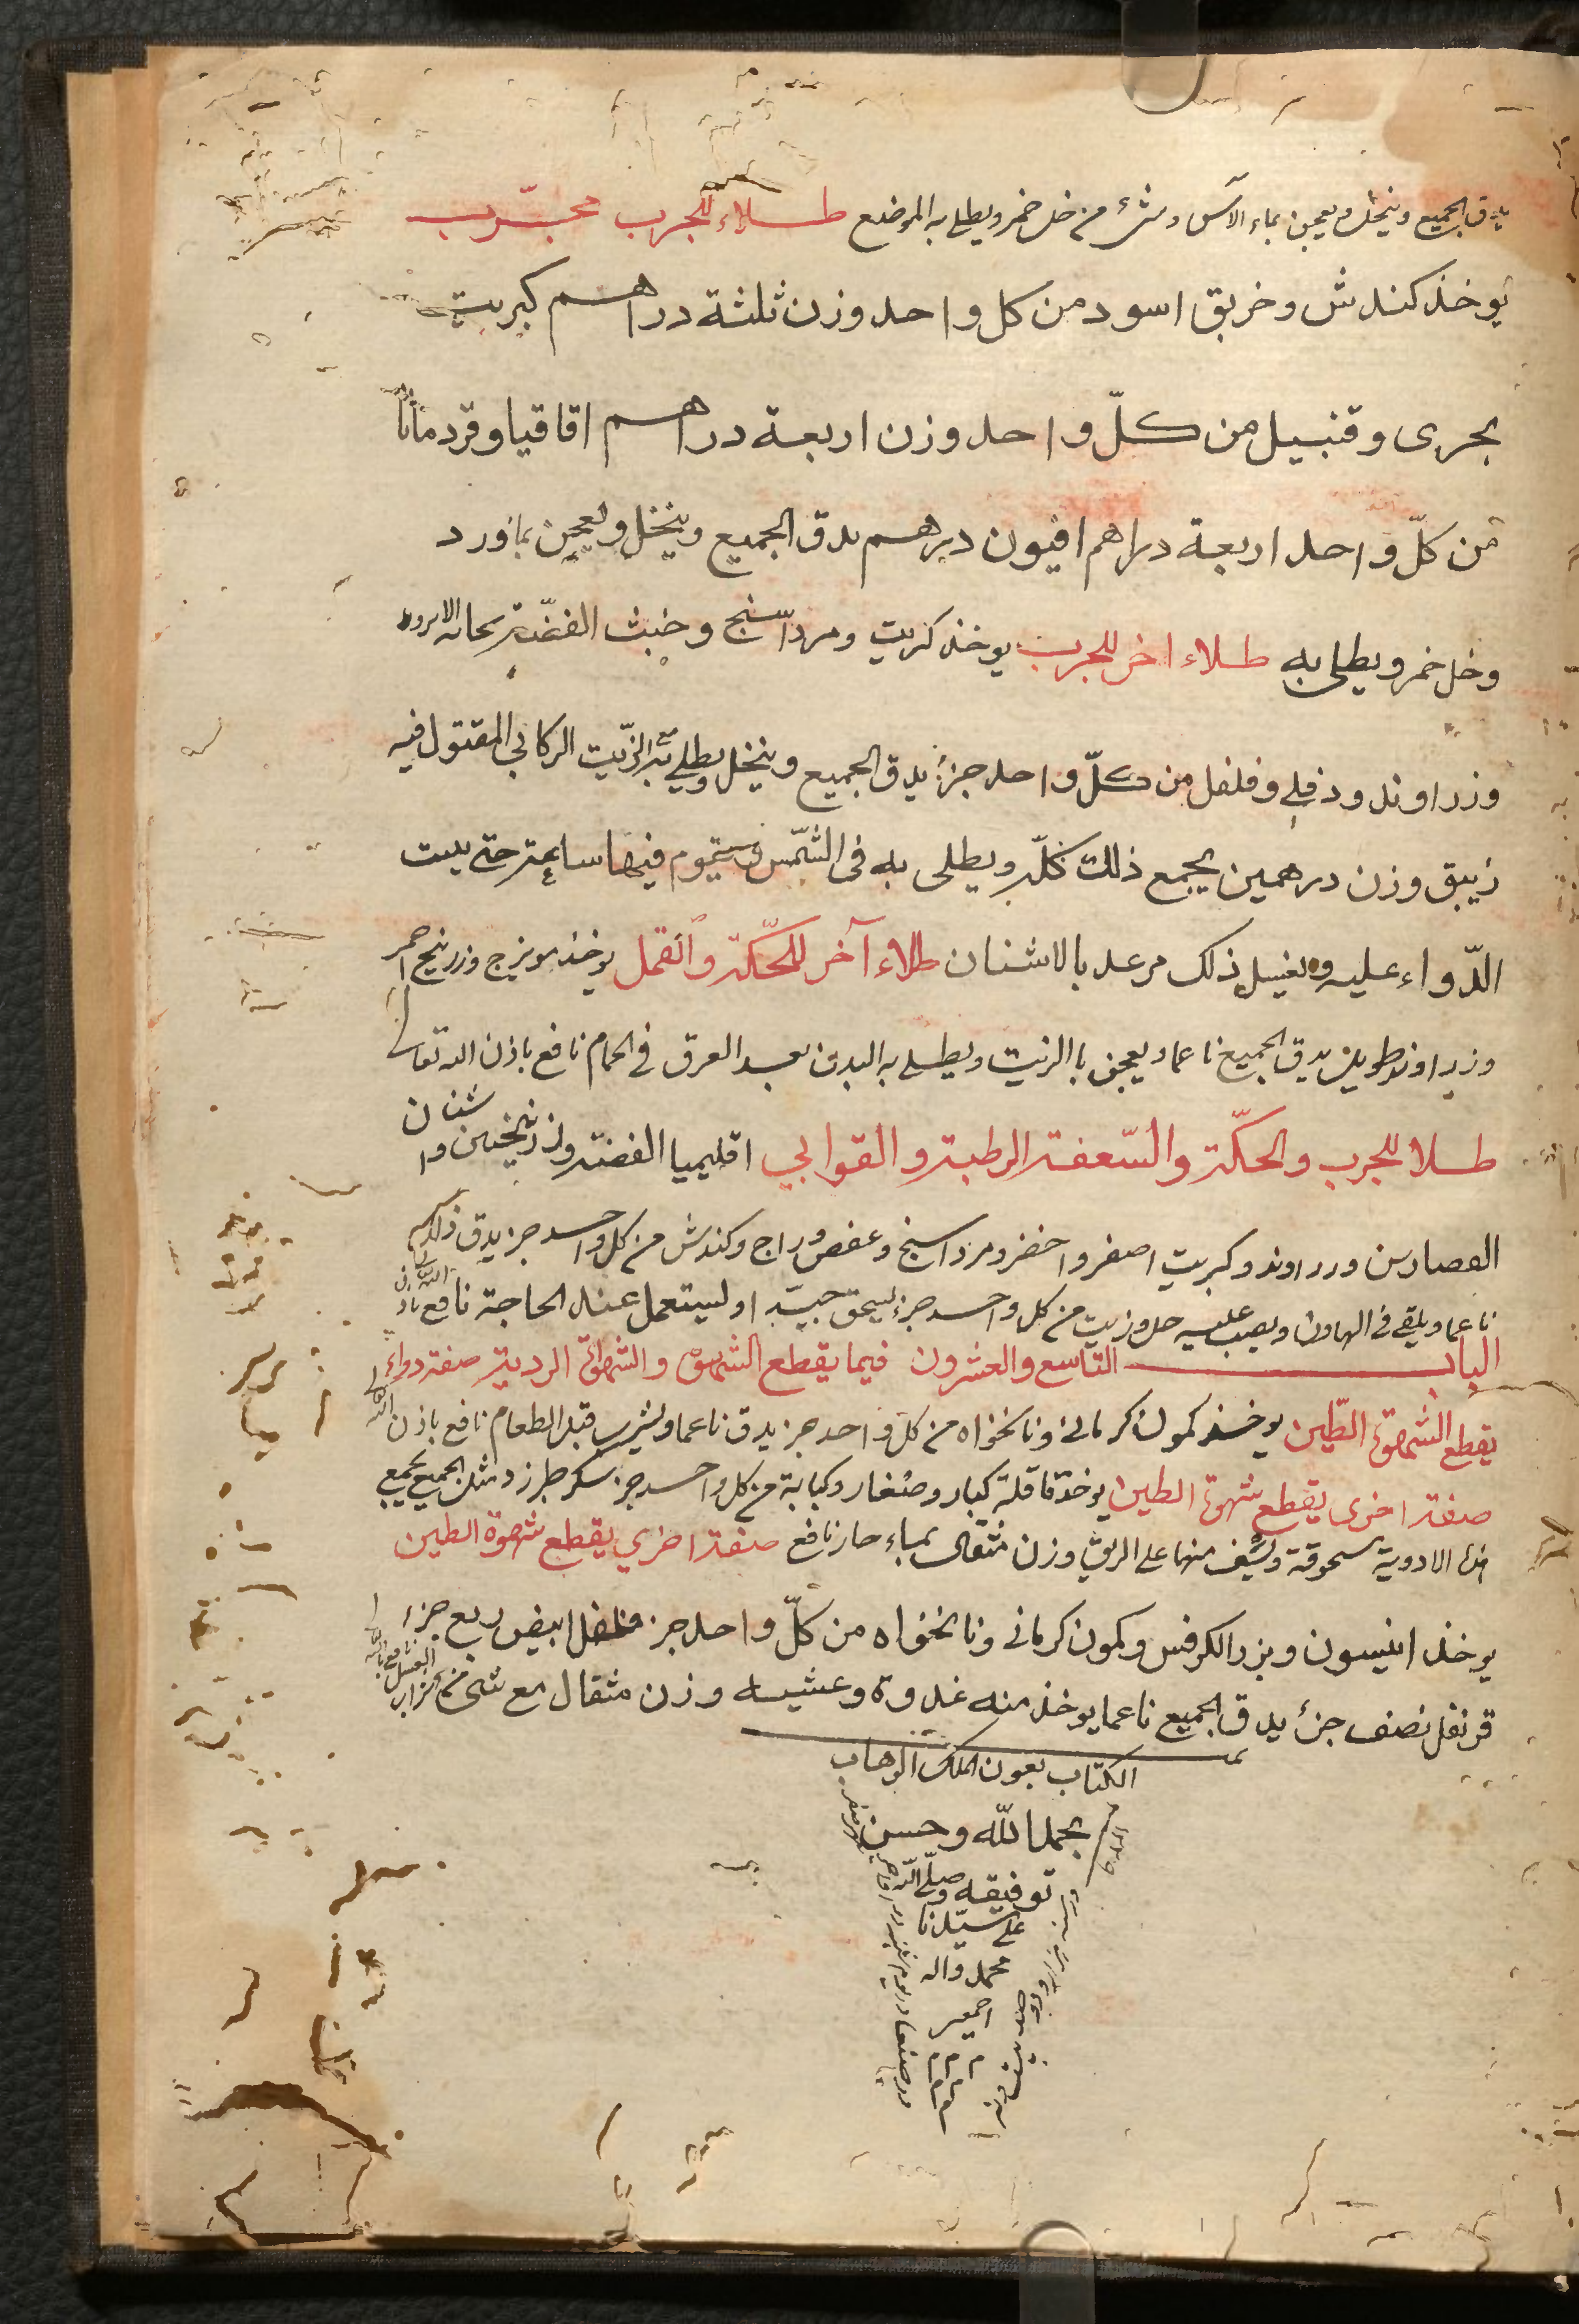 يدق الجميع وينخل ويعجن بماء الآس وشئ من خل خمر ويطلى به الموضع طلاء للجرب مجرّب
يوخذ كندش وخربق اسود من كل واحد وزن ثلثة دراهم كبريت
بحرى وقنبيل من كلّ واحد وزن اربعة دراهم اقاقيا وقردمانا
من كلّ واحد اربعة دراهم افيون درهم يدق الجميع وينخل ويعجن بماورد
وخل خمر ويطلى به طلاء اخر للجرب يوخذ كبريت ومرداسنج وخبث الفضّة
وزراوند ودفلي وفلفل من كلّ واحد جزؤ يدق الجميع وينخل ويطلي به الزّيت الركابي المقتول فيه
زيبق وزن درهمين يجمع ذلك كلّه ويطلى به فى الشّمس ويقوم فيها ساعة حتى
الدّواء عليه ويغسل ذلك من بعد بالاشنان طلاء آخر للحكّة والقمل يوخذ مويزج وزرنيخ احمر
وزراوند طويل يدق الجميع ناعما ويعجن باالزيت ويطلى به البدن بعد العرق في الحمام نافع باذن الله تعالى
طلا للجرب والحكّة والسّعفة الرطبة والقوابي اقليميا الفضة وزرنيخين واشنان
القصارين وزراوند وكبريت اصفر واخضر ومرداسنج وعفص وراج وكندش من كل واحد جز يدق ذلك
ناعما ويلقى فى الهاون ويصب عليه خل وزيت من كل واحد جزء يسحق جيدا ويستعمل عند الحاجة نافع باذن الله
الباب التاسع والعشرون فيما يقطع الشهوة والشهوة الردية صفة دواء
يقطع الشهوة الطّين يوخذ كمون كرمانى ونانخواه من كل واحد جز يدق ناعما ويشرب قبل الطعام نافع باذن الله
صفة اخرى يقطع شهوة الطين يوخذ قاقلة كبار وصغار وكبابة من كل واحد جز سكر طبرزد مثل الجميع يجمع
هذه الادوية مسحوقة ويسف منها على الريق وزن مثقال بماء حار نافع صفة اخري يقطع شهوة الطين
يوخذ انيسون وبزر الكرفس وكمون كرمانى ونانخواه من كلّ واحد جز فلفل ابيض ربع جزء
قرنفل نصف جزء يدق الجميع ناعما يوخذ منه غدوة وعشيه وزن مثقال مع شى من
تم الكتاب بعون الملك الوهاب
بحمد الله وحسن
توفيقه وصلّى الله
على سيّدنا
محمد واله
اجمعين